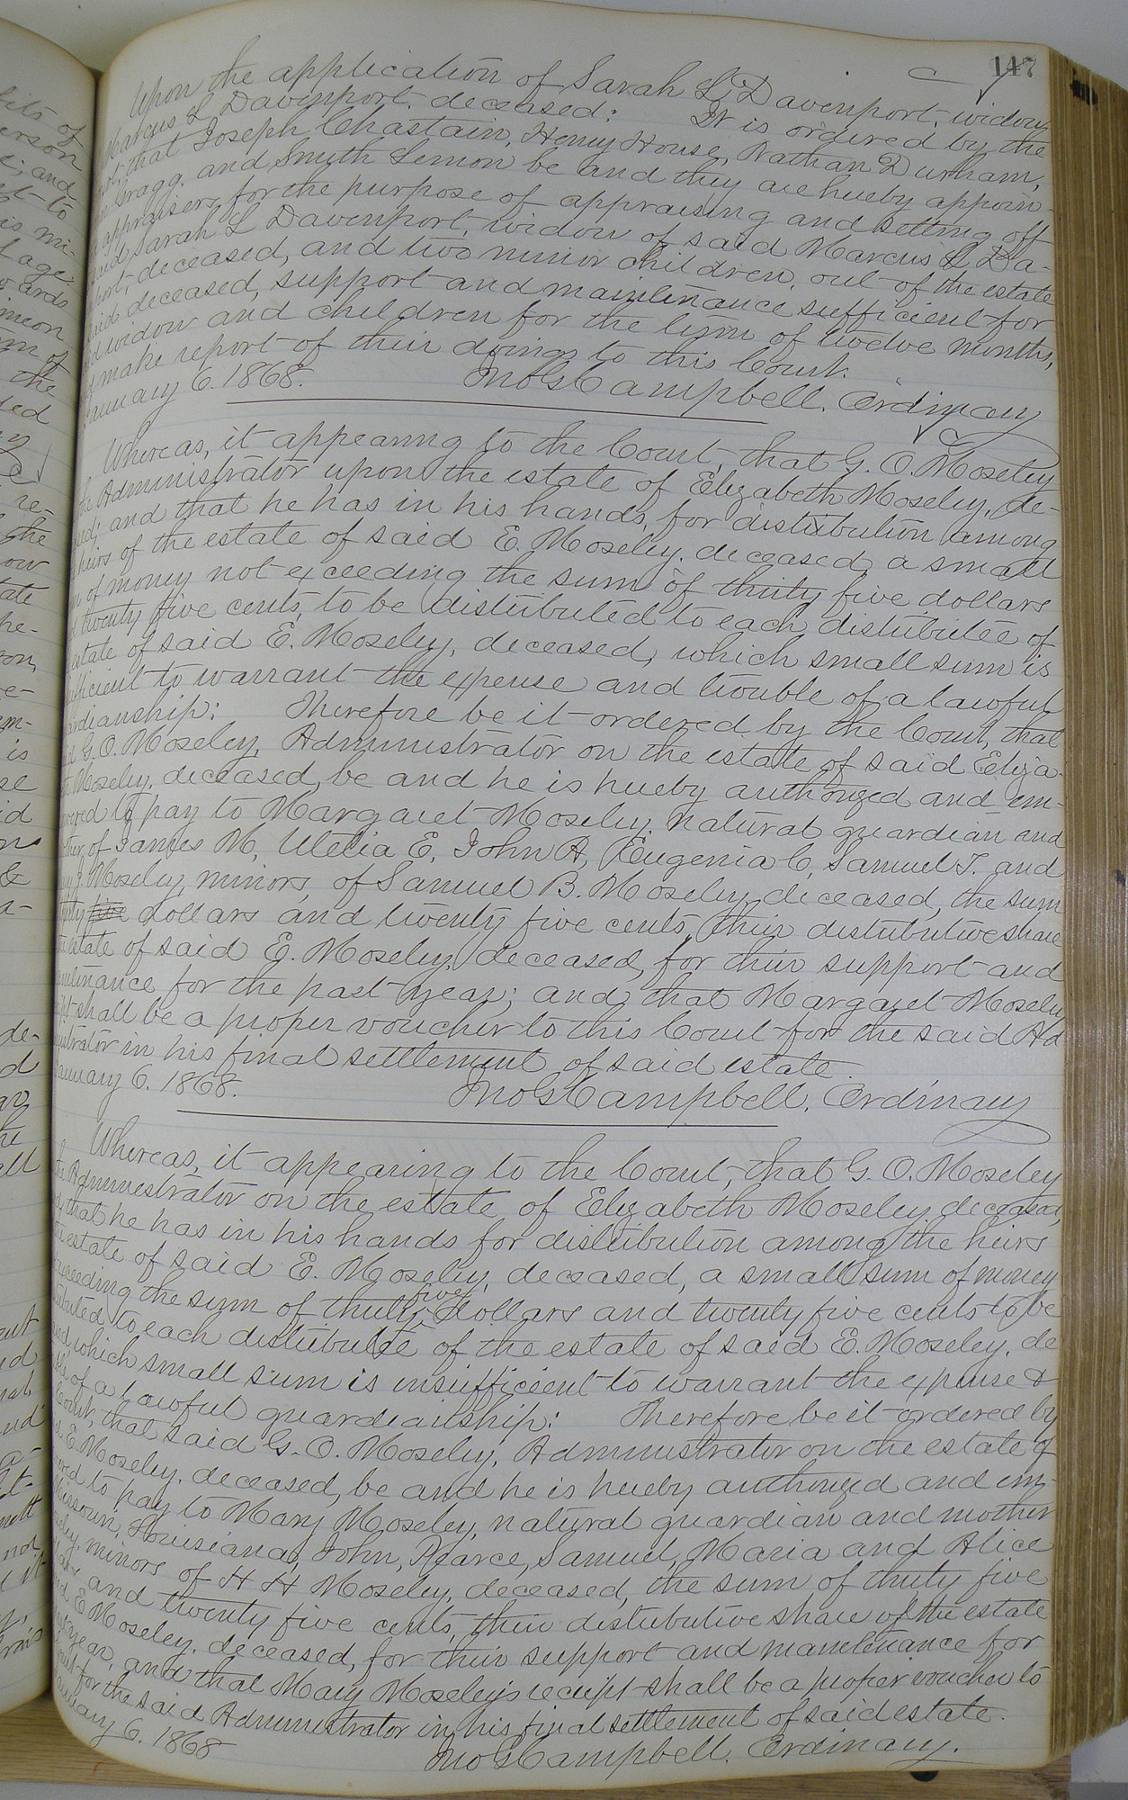 147
Upon the application of Sarah L Davenport, widow
Marcus L Davenport, deceased: It is ordered by the
that Joseph Chastain, Henry House, Nathan Durham,
Gragg, and Smith Lemon be and they are hereby appoin-
appraisers for the purpose of appraising and setting off
Sarah L Davenport, widow of said Marcus L Da-
deceased, and two minor children, out of the estate
deceased, support and maintenance sufficient for
widow and children for the term of twelve months,
make report of their doings to this Court.
January 6. 1868. Jno G Campbell. Ordinary
Whereas, it appearing to the Court, that G. O. Moseley
Administrator upon the estate of Elizabeth Moseley, de-
and that he has in his hands, for distribution among
heirs of the estate of said E. Moseley, deceased, a small
of money not exceeding the sum of thirty five dollars
twenty five cents, to be distributed to each distributee of
estate of said E. Moseley, deceased, which small sum is
to warrant the expense and trouble of a lawful
Therefore be it ordered by the Court, that
G. O. Moseley, Administrator on the estate of said Eliza-
Moseley, deceased, be and he is hereby authorized and em-
to pay to Margaret Moseley, natural guardian and
of James M, Uletia E, John A, Eugenia C, Samuel T. and
Moseley, minors of Samuel B. Moseley, deceased, the sum
dollars and twenty five cents, their distributive share
estate of said E. Moseley, deceased, for their support and
maintenance for the past year; and that Margaret Moseley
shall be a proper voucher to this Court for the said Ad
in his final settlement of said estate.
January 6. 1868. Jno G Campbell. Ordinary
Whereas, it appearing to the Court, that G. O. Moseley
Administrator on the estate of Elizabeth Moseley deceased,
that he has in his hands for distribution among the heirs
estate of said E. Moseley, deceased, a small sum of money
exceeding the sum of thirty five dollars and twenty five cents to be
to each distributee of the estate of said E. Moseley, de
which small sum is insufficient to warrant the expense &
of a lawful guardianship: Therefore be it ordered by
Court, that said G. O. Moseley, Administrator on the estate of
E. Moseley, deceased, be and he is hereby authorized and em-
to pay to Mary Moseley, natural guardian and mother
Missouri, Louisiana, John, Pearce, Samuel, Maria and Alice
minors of H H Moseley, deceased, the sum of thirty five
and twenty five cents, their distributive share of the estate
E Moseley, deceased, for their support and maintenance for
year, and that Mary Moseley's receipt shall be a proper voucher to
for the said Administrator in his final settlement of said estate.
January 6. 1868 Jno G Campbell. Ordinary.